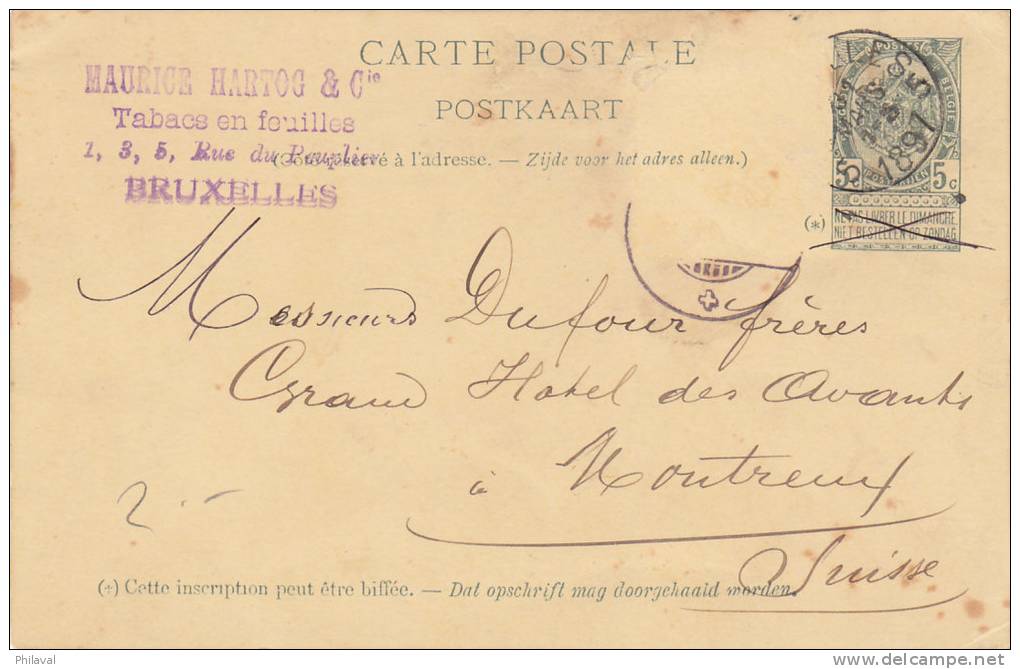 CARTE POSTALE
POSTKAART
MAURICE HARTOG & Cie
Tabacs en feuilles
1, 3, 5, Rue du Peuplier
BRUXELLES
(Côté réservé à l'adresse. — Zijde voor het adres alleen.)
1897
5 c
(*)
NE PAS LIVRER LE DIMANCHE
NIET BESTELLEN OP ZONDAG
Messieurs Dufour frères
Grand Hotel des Avants
à Montreux
Suisse
(+) Cette inscription peut être biffée. — Dat opschrift mag doorgehaald worden.
Philaval
www.delcampe.net